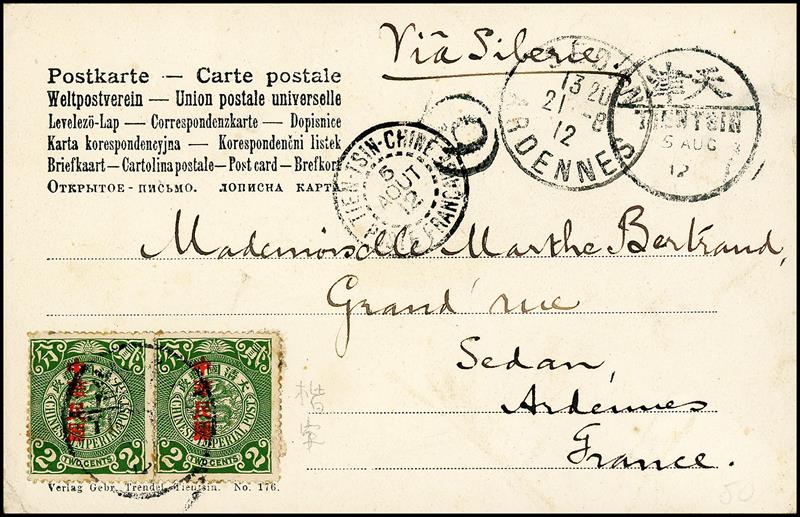 Viâ Siberie
Postkarte — Carte postale
Weltpostverein — Union postale universelle
Levelező-Lap — Correspondenzkarte — Dopisnice
Karta korespondencyjna — Korespondenční listek
Briefkaart — Cartolina postale — Post card — Brefkort
Открытое-письмо. лописна карта
13 20
21 - 8
12
ARDENNES
天
TIENTSIN
5 AUG
12
TIEN-TSIN-CHINE
5
AOUT
12
Mademoiselle Marthe Bertrand,
Grand' rue
Sedan,
Ardennes
France.
CHINESE IMPERIAL POST
2 TWO CENTS 2
CHINESE IMPERIAL POST
2 TWO CENTS 2
楷字
Verlag Gebr. Trendel, Tientsin. No. 176.
50